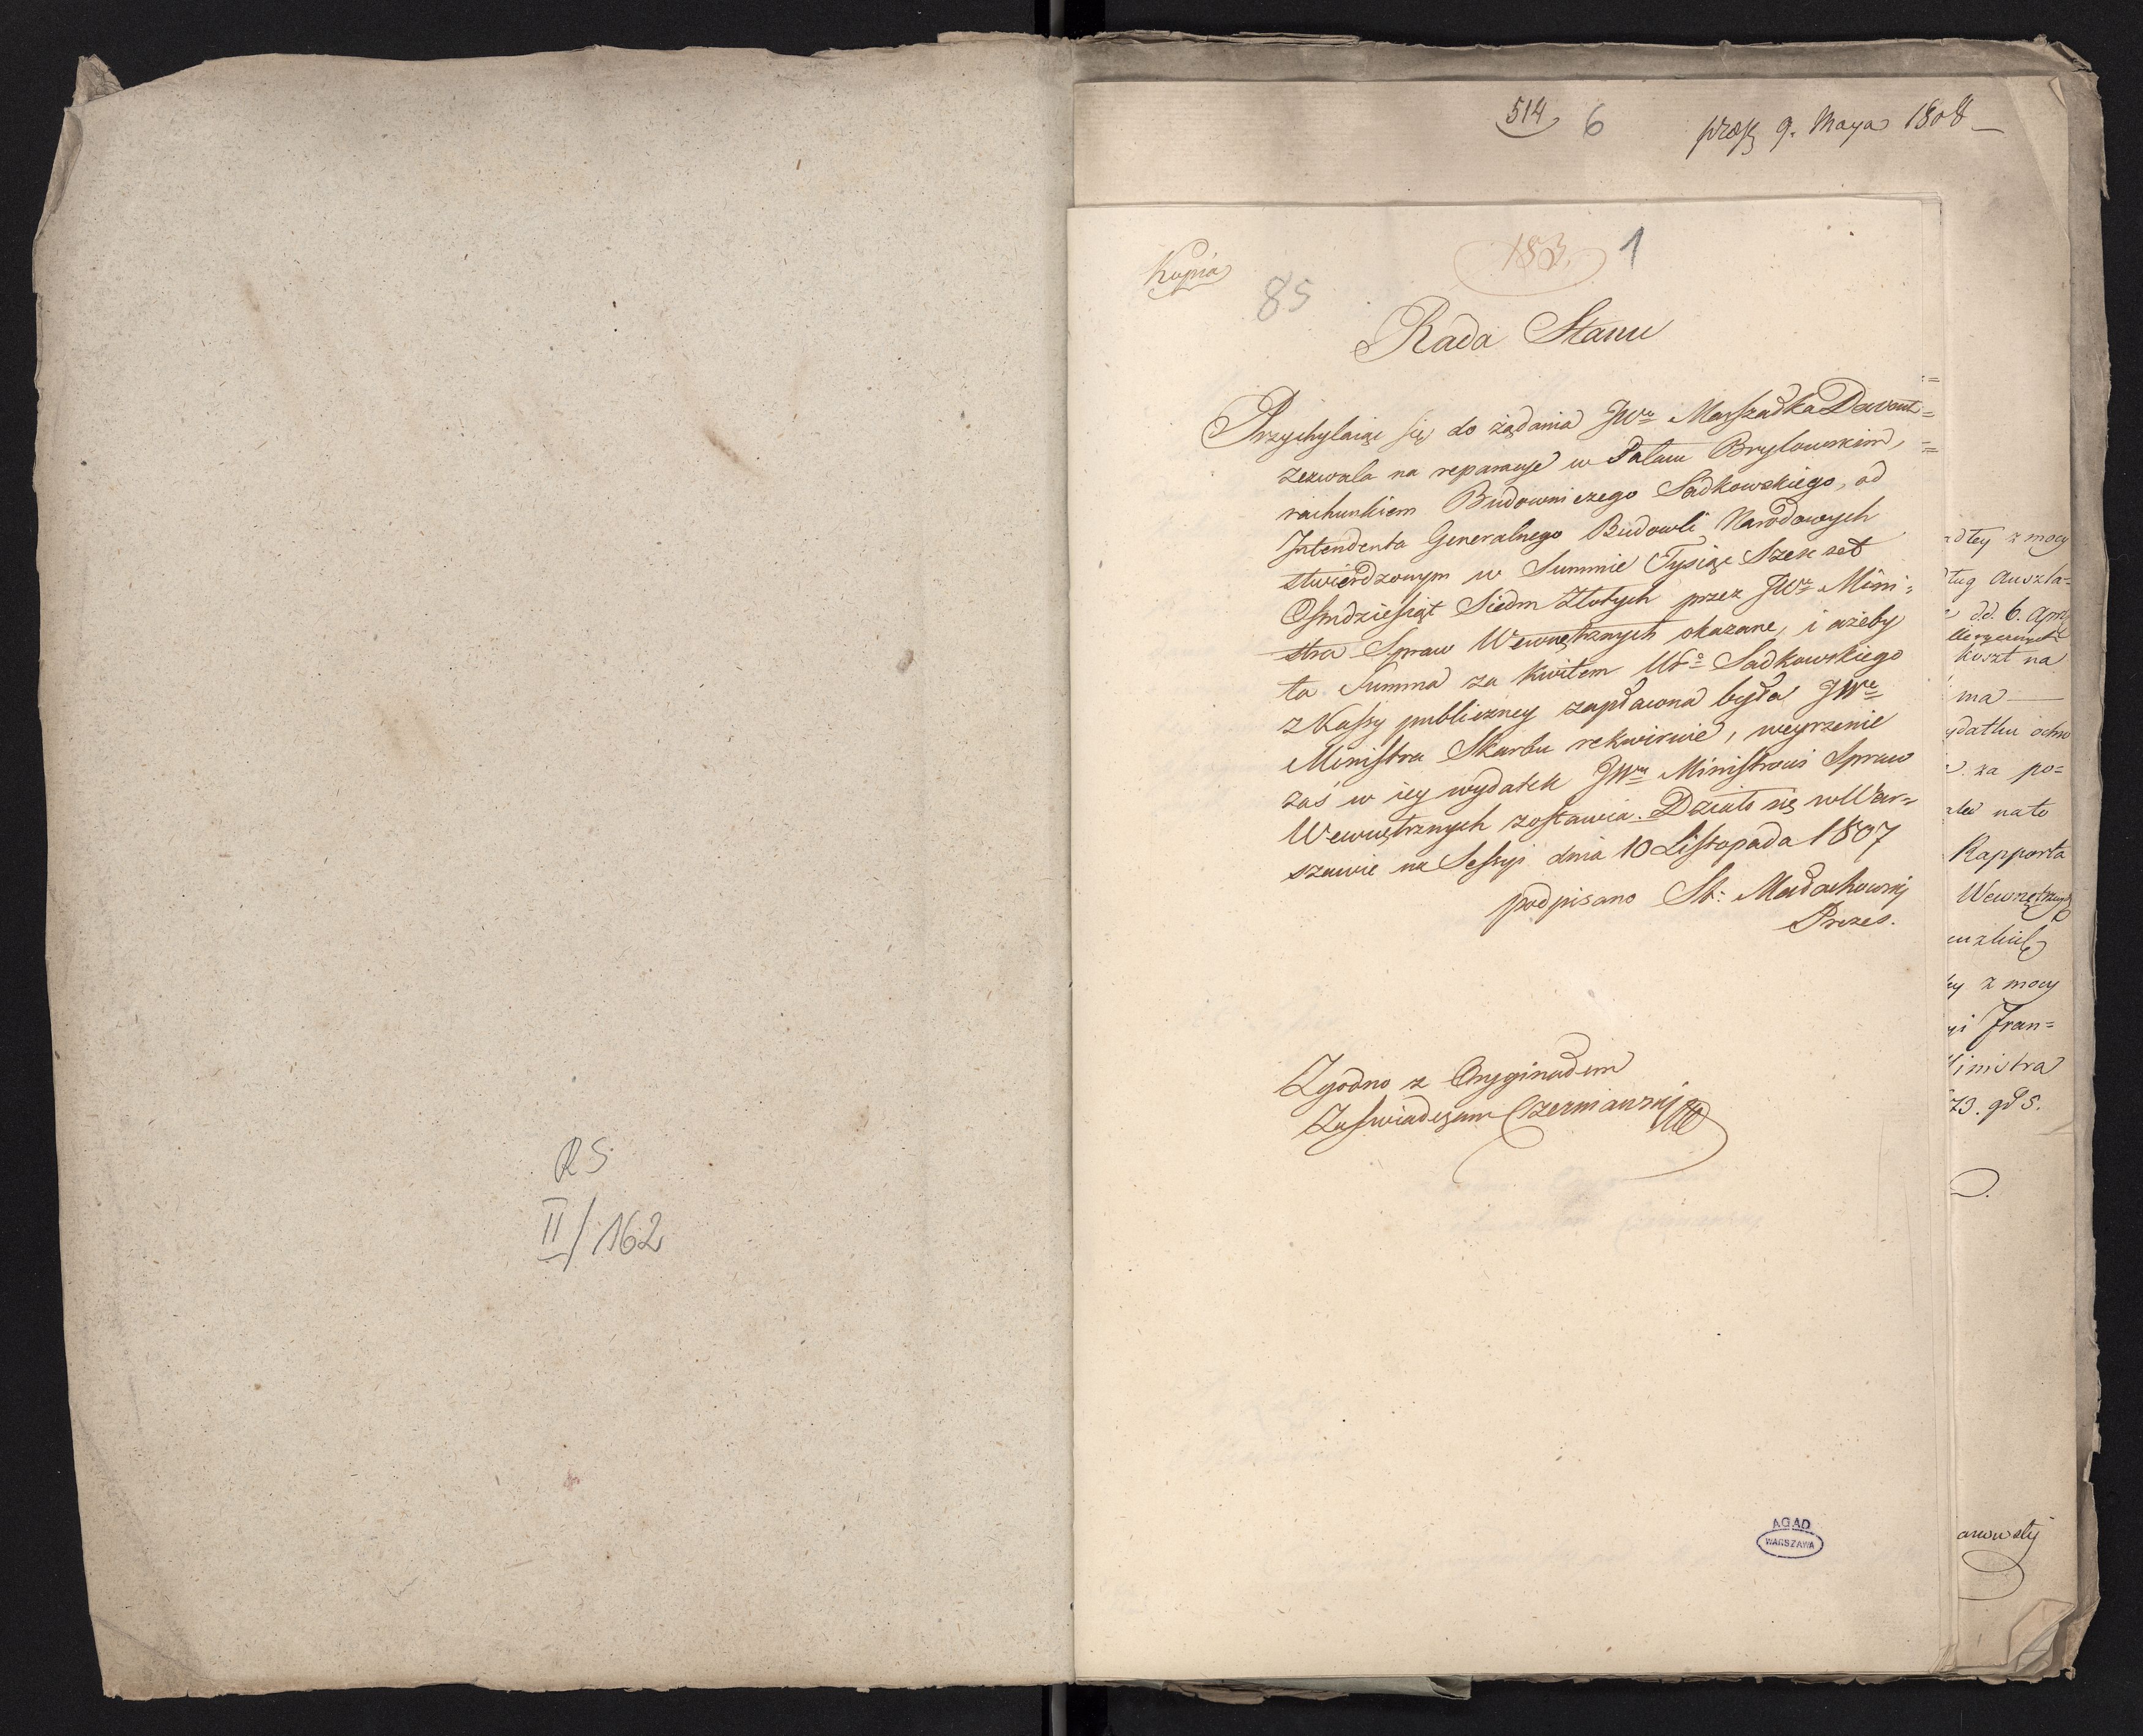 RS
II/162
514 6 9. Maya 1808
Kopia
183. 1
85
Rada Stanu
Przychylaiąc się do żądania JWo Marszałka Davout
zezwala na reparacye w Pałacu Brylowskim,
rachunkiem Budowniczego Sadkowskiego, od
Intendenta Generalnego Budowli Narodowych
stwierdzonym w Summie Tysiąc Szesc set
Osmdziesiąt Siedm Złotych przez JWo Mini-
stra Spraw Wewnętrznych okazane, i ażeby
ta Summa za kwitem Sadkowskiego
z Kassy publiczney zapłacona była JWo
Ministra Skarbu rekwiruie, weyrzenie
zaś w iey wydatek JWmu Ministrowi Spraw
Wewnętrznych zostawia. Działo się w War=
szawie na Sessyi dnia 10 Listopada 1807
podpisano St: Małachowski
Prezes.
Zgodno z Oryginałem
Zaswiadczam Czermianski
AGAD
WARSZAWA
z mocy
dd. 6. Apr
koszt na
ma
za po=
na to
Rapporta
Wewnętrznych
z mocy
Fran=
Ministra
73. gd 5.